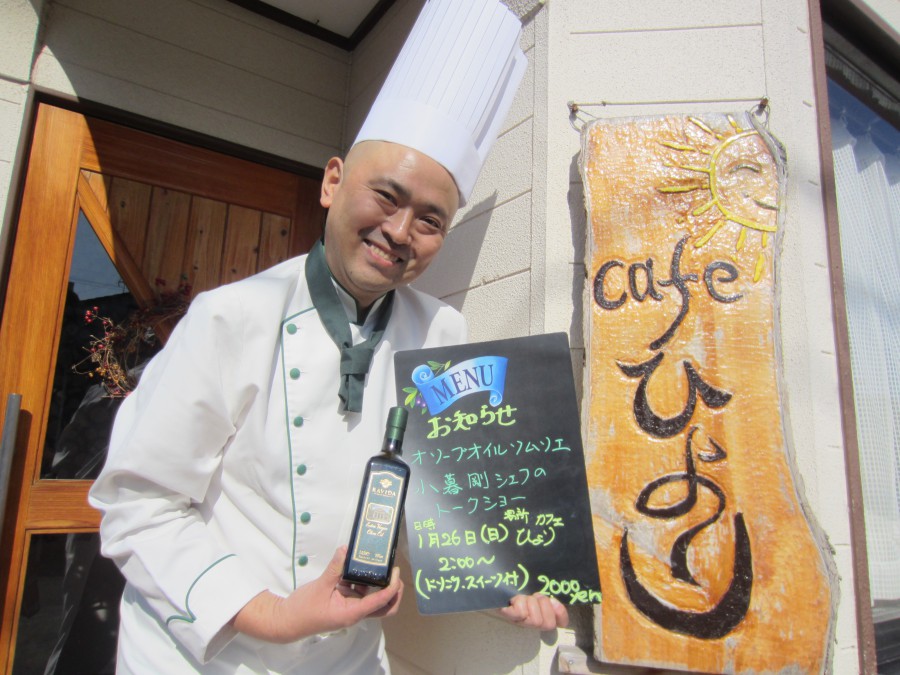 MENU
お知らせ
オリーブオイルソムリエ
小暮剛シェフの
トークショー
日時 場所 カフェ
1月26日(日) ひより
2:00〜
(ドリンク.スイーツ付) 2000yen
RAVIDA
Extra Virgin
Olive Oil
cafe
ひより